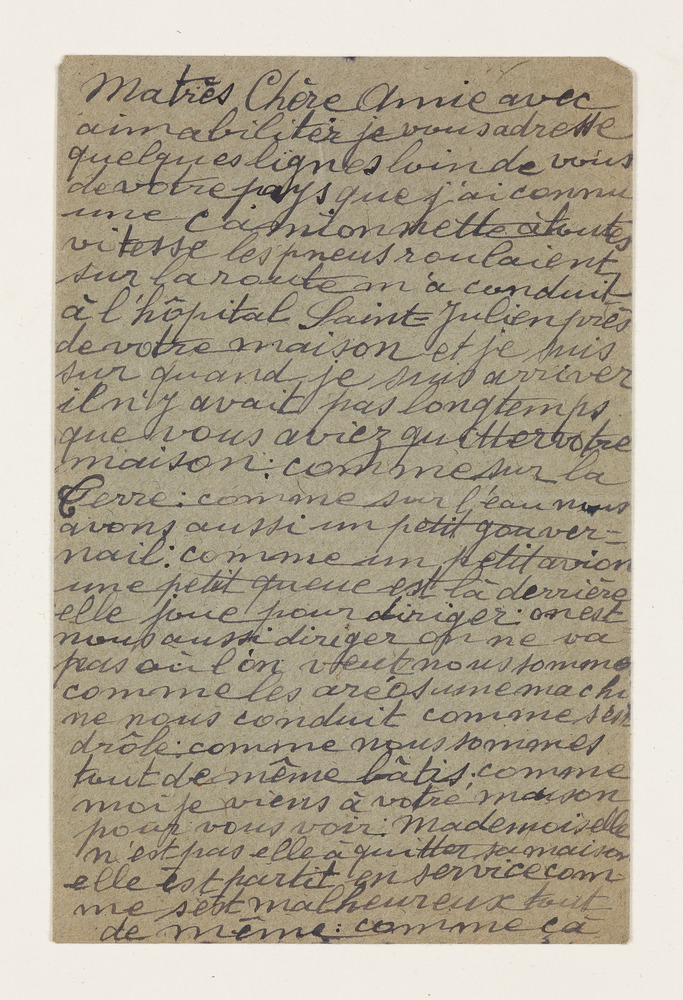 Ma très Chère Amie avec
aimabilitér je vous adresse
quelques lignes loin de vous
de votre pays que j'ai connu
une camionnette à toutes
vitesse les pneus roulaient
sur la route m'a conduit
à l'hôpital Saint=Julien près
de votre maison et je suis
sur quand je suis arriver
il n'y avait pas longtemps
que vous aviez quitter votre
maison: comme sur la
Terre: comme sur l'eau nous
avons aussi un petit gouver=
nail: comme un petit avion
une petit queue est là derrière
elle joue pour diriger: on est
nous aussi diriger on ne va
pas où l'on veut nous somme
comme les aréos une machi
ne nous conduit comme sest
drôle: comme nous sommes
tout de même bâtis: comme
moi je viens à votre maison
pour vous voir: Mademoiselle
n'est pas elle à quitter sa maison
elle est partit en service com
me sest malheureux tout
de même: comme çà